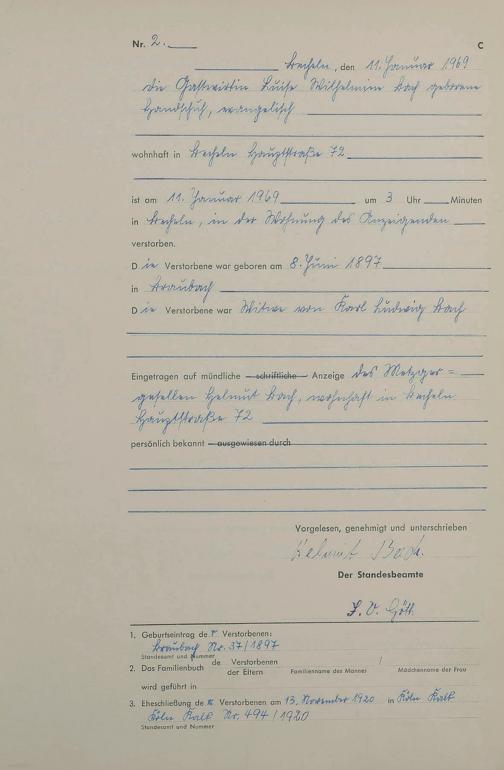 Nr. 2. C
Becheln, den 11. Januar 1969
Die Gastwirtin Luise Wilhelmine Bach geborene
Handschuh, evangelisch
wohnhaft in Becheln Hauptstraße 72
ist am 11. Januar 1969 um 3 Uhr Minuten
in Becheln, in der Wohnung des Anzeigenden
verstorben.
Die Verstorbene war geboren am 8. Juni 1897
in Braubach
Die Verstorbene war Witwe von Karl Ludwig Bach
Eingetragen auf mündliche – schriftliche – Anzeige des Metzger=
gesellen Helmut Bach, wohnhaft in Becheln
Hauptstraße 72
persönlich bekannt – ausgewiesen durch
Vorgelesen, genehmigt und unterschrieben
Helmut Bach.
Der Standesbeamte
I. V. Gött
1. Geburtseintrag der Verstorbenen:
Braubach Nr. 37/1897
Standesamt und Nummer
2. Das Familienbuch de Verstorbenen /
der Eltern Familienname des Mannes Mädchenname der Frau
wird geführt in
3. Eheschließung de Verstorbenen am 13. November 1920 in Köln Kalk
Köln Kalk Nr. 494/1920
Standesamt und Nummer